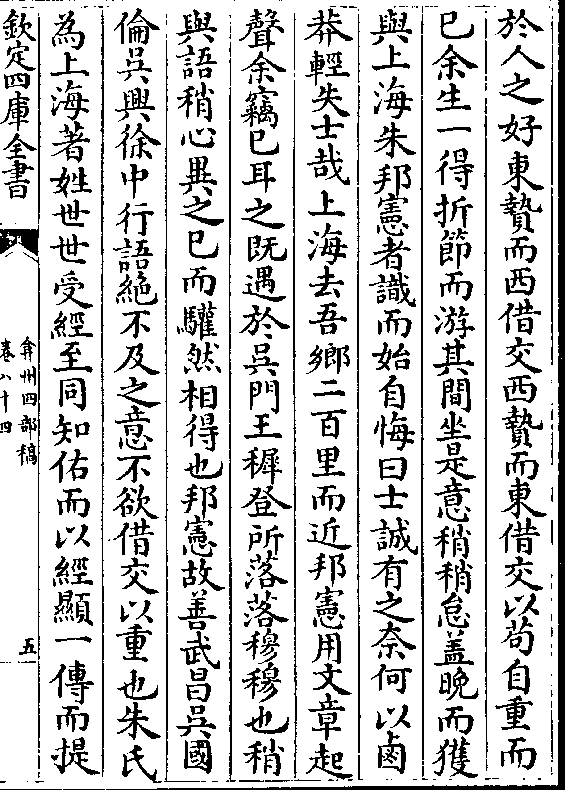 於人之好東贄而西借交西贄而東借交以苟自重而
已余生一得折節而游其間坐是意稍稍怠盖晚而獲
與上海朱邦憲者識而始自悔曰士誠有之奈何以鹵
莽輕失士哉上海去吾鄉二百里而近邦憲用文章起
聲余竊已耳之既遇於吳門王穉登所落落穆穆也稍
與語稍心異之已而驩然相得也邦憲故善武昌吳國
倫吳興徐中行語絶不及之意不欲借交以重也朱氏
為上海著姓世世受經至同知佑而以經顯一傳而提
欽定四庫全書
弇州四部稿
卷八十四
五